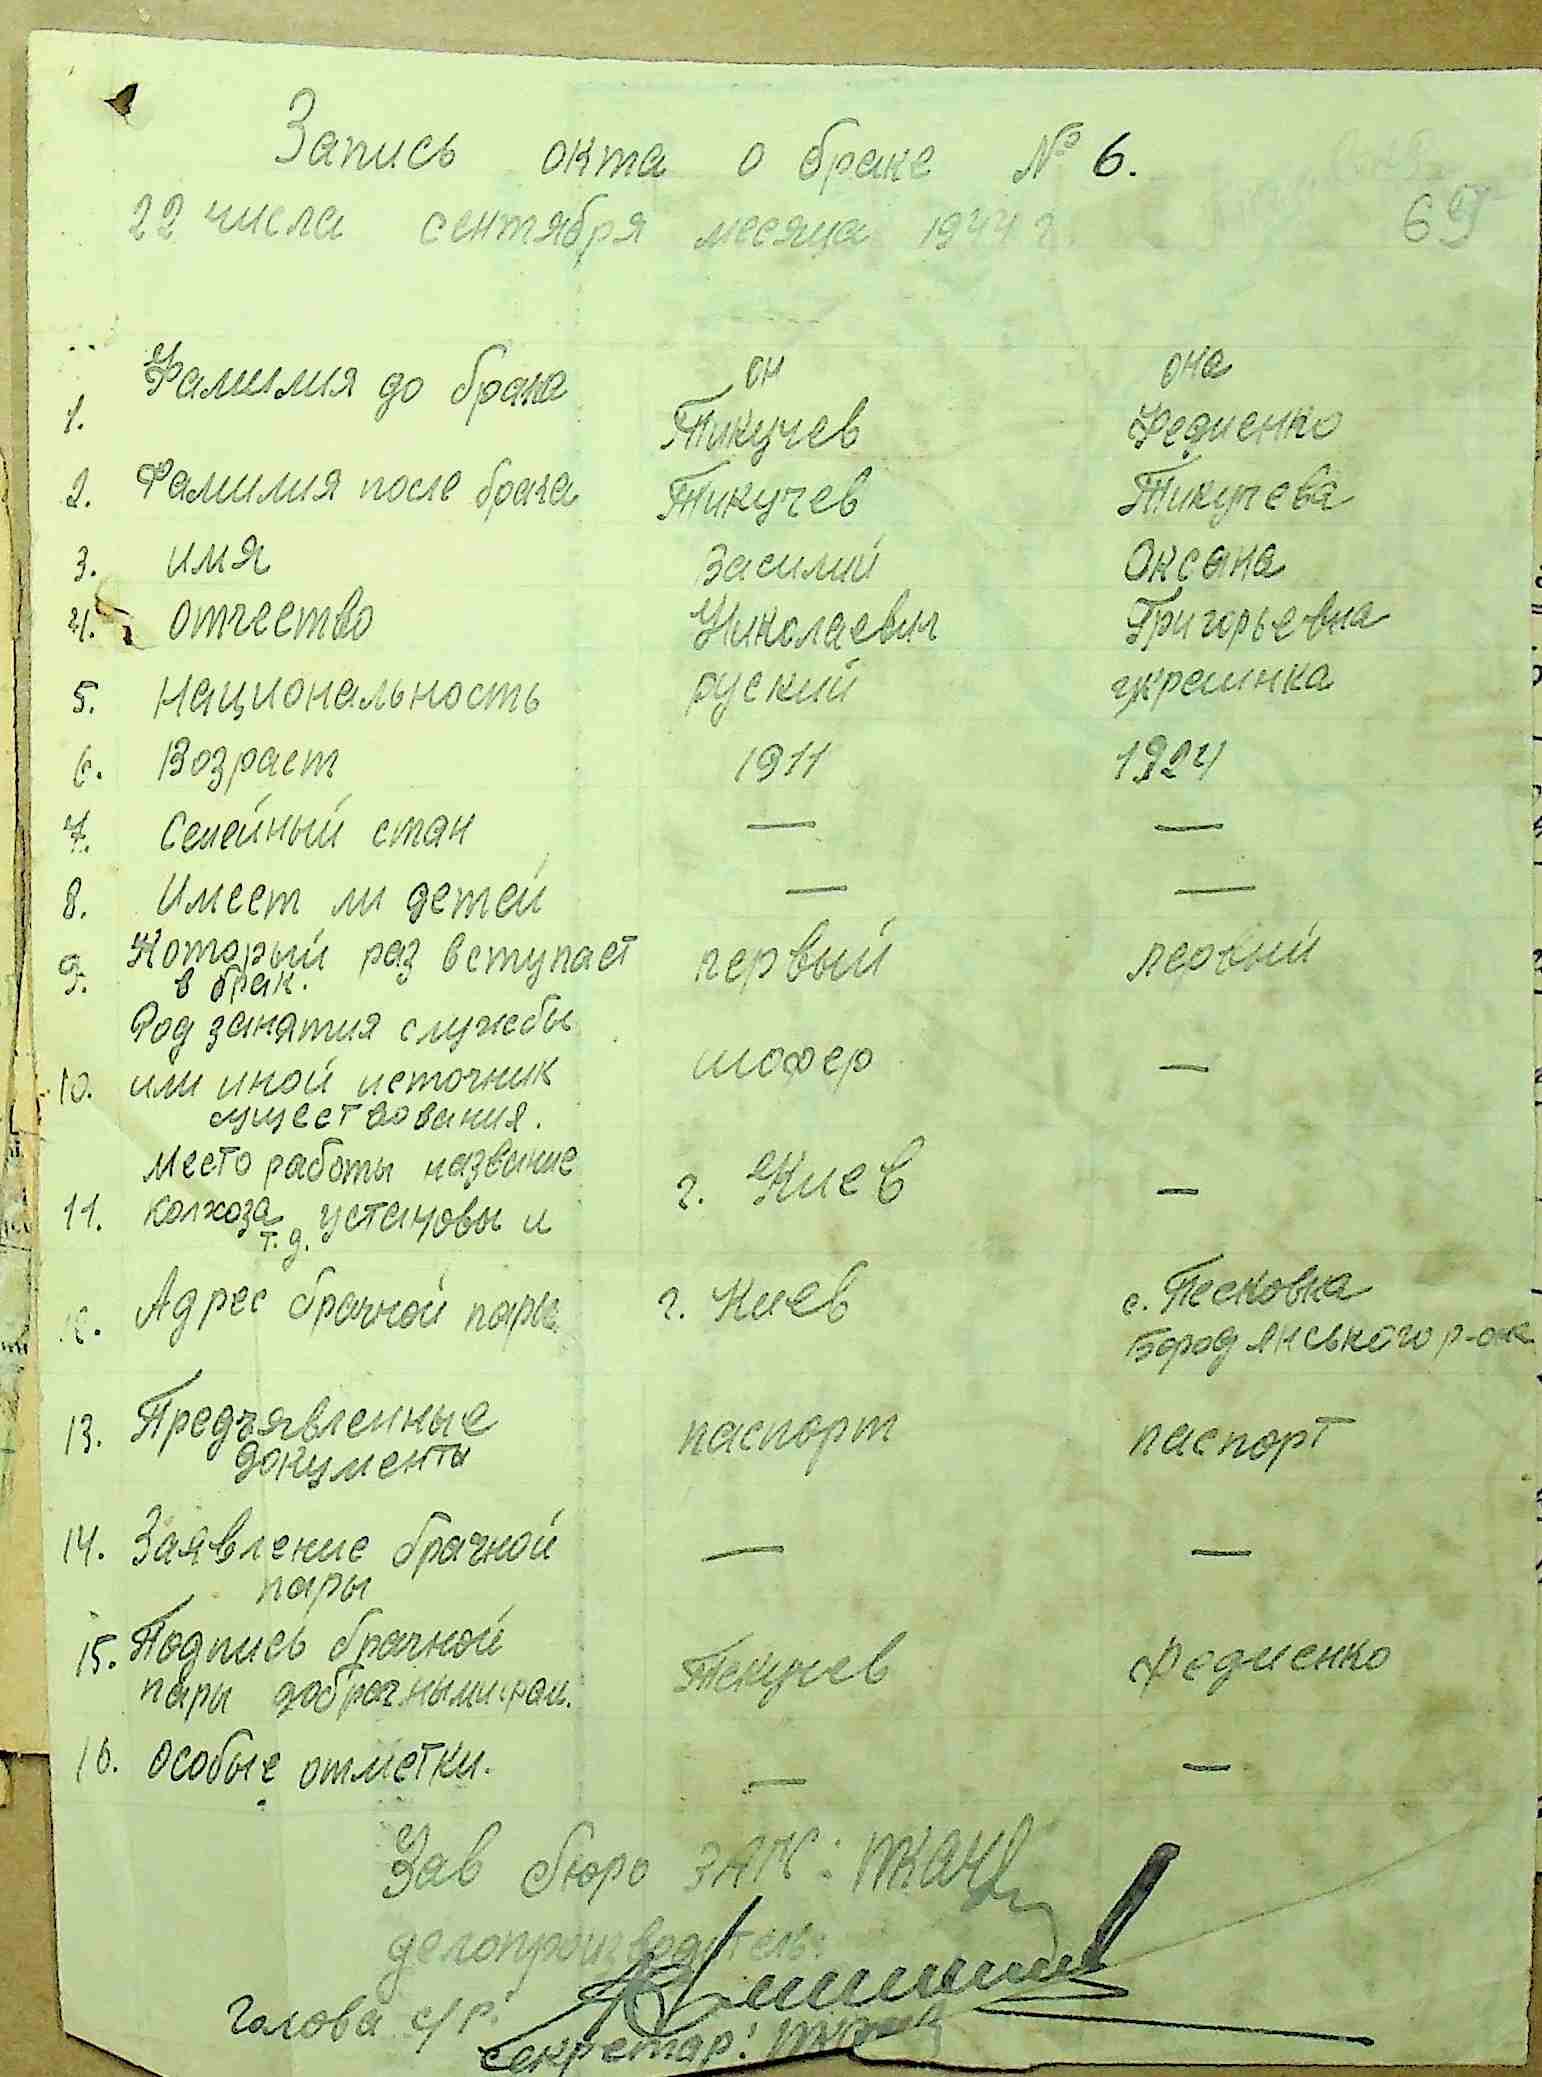 Запись окта о браке № 6.
22 числа сентября месяца 1944 г.
69
он она
1. Фамилия до брака Тикучев Федиенко
2. Фамилия после брака Тикучев Тикучева
3. имя Василий Оксана
4. отчество Николаевич Григорьевна
5. Национальность руский украинка
6. Возраст 1911 1924
7. Семейный стан — —
8. Имеет ли детей — —
9. Который раз вступает первый первый
в брак.
Род занятия службы
10. или иной источник шофер —
существования.
Место работы название
11. колхоза установы и г. Киев —
т.д.
12. Адрес брачной пары г. Киев с. Песковка
Бородянського р-она
13. Предъявленные паспорт паспорт
документы
14. Заявление брачной — —
пары
15. Подпись брачной Текучев Федиенко
пары добрачными фам.
16. особые отметки. — —
Зав бюро ЗАГС: Ткач
делопроизводитель:
Голова с/р.
секретар: Ткач